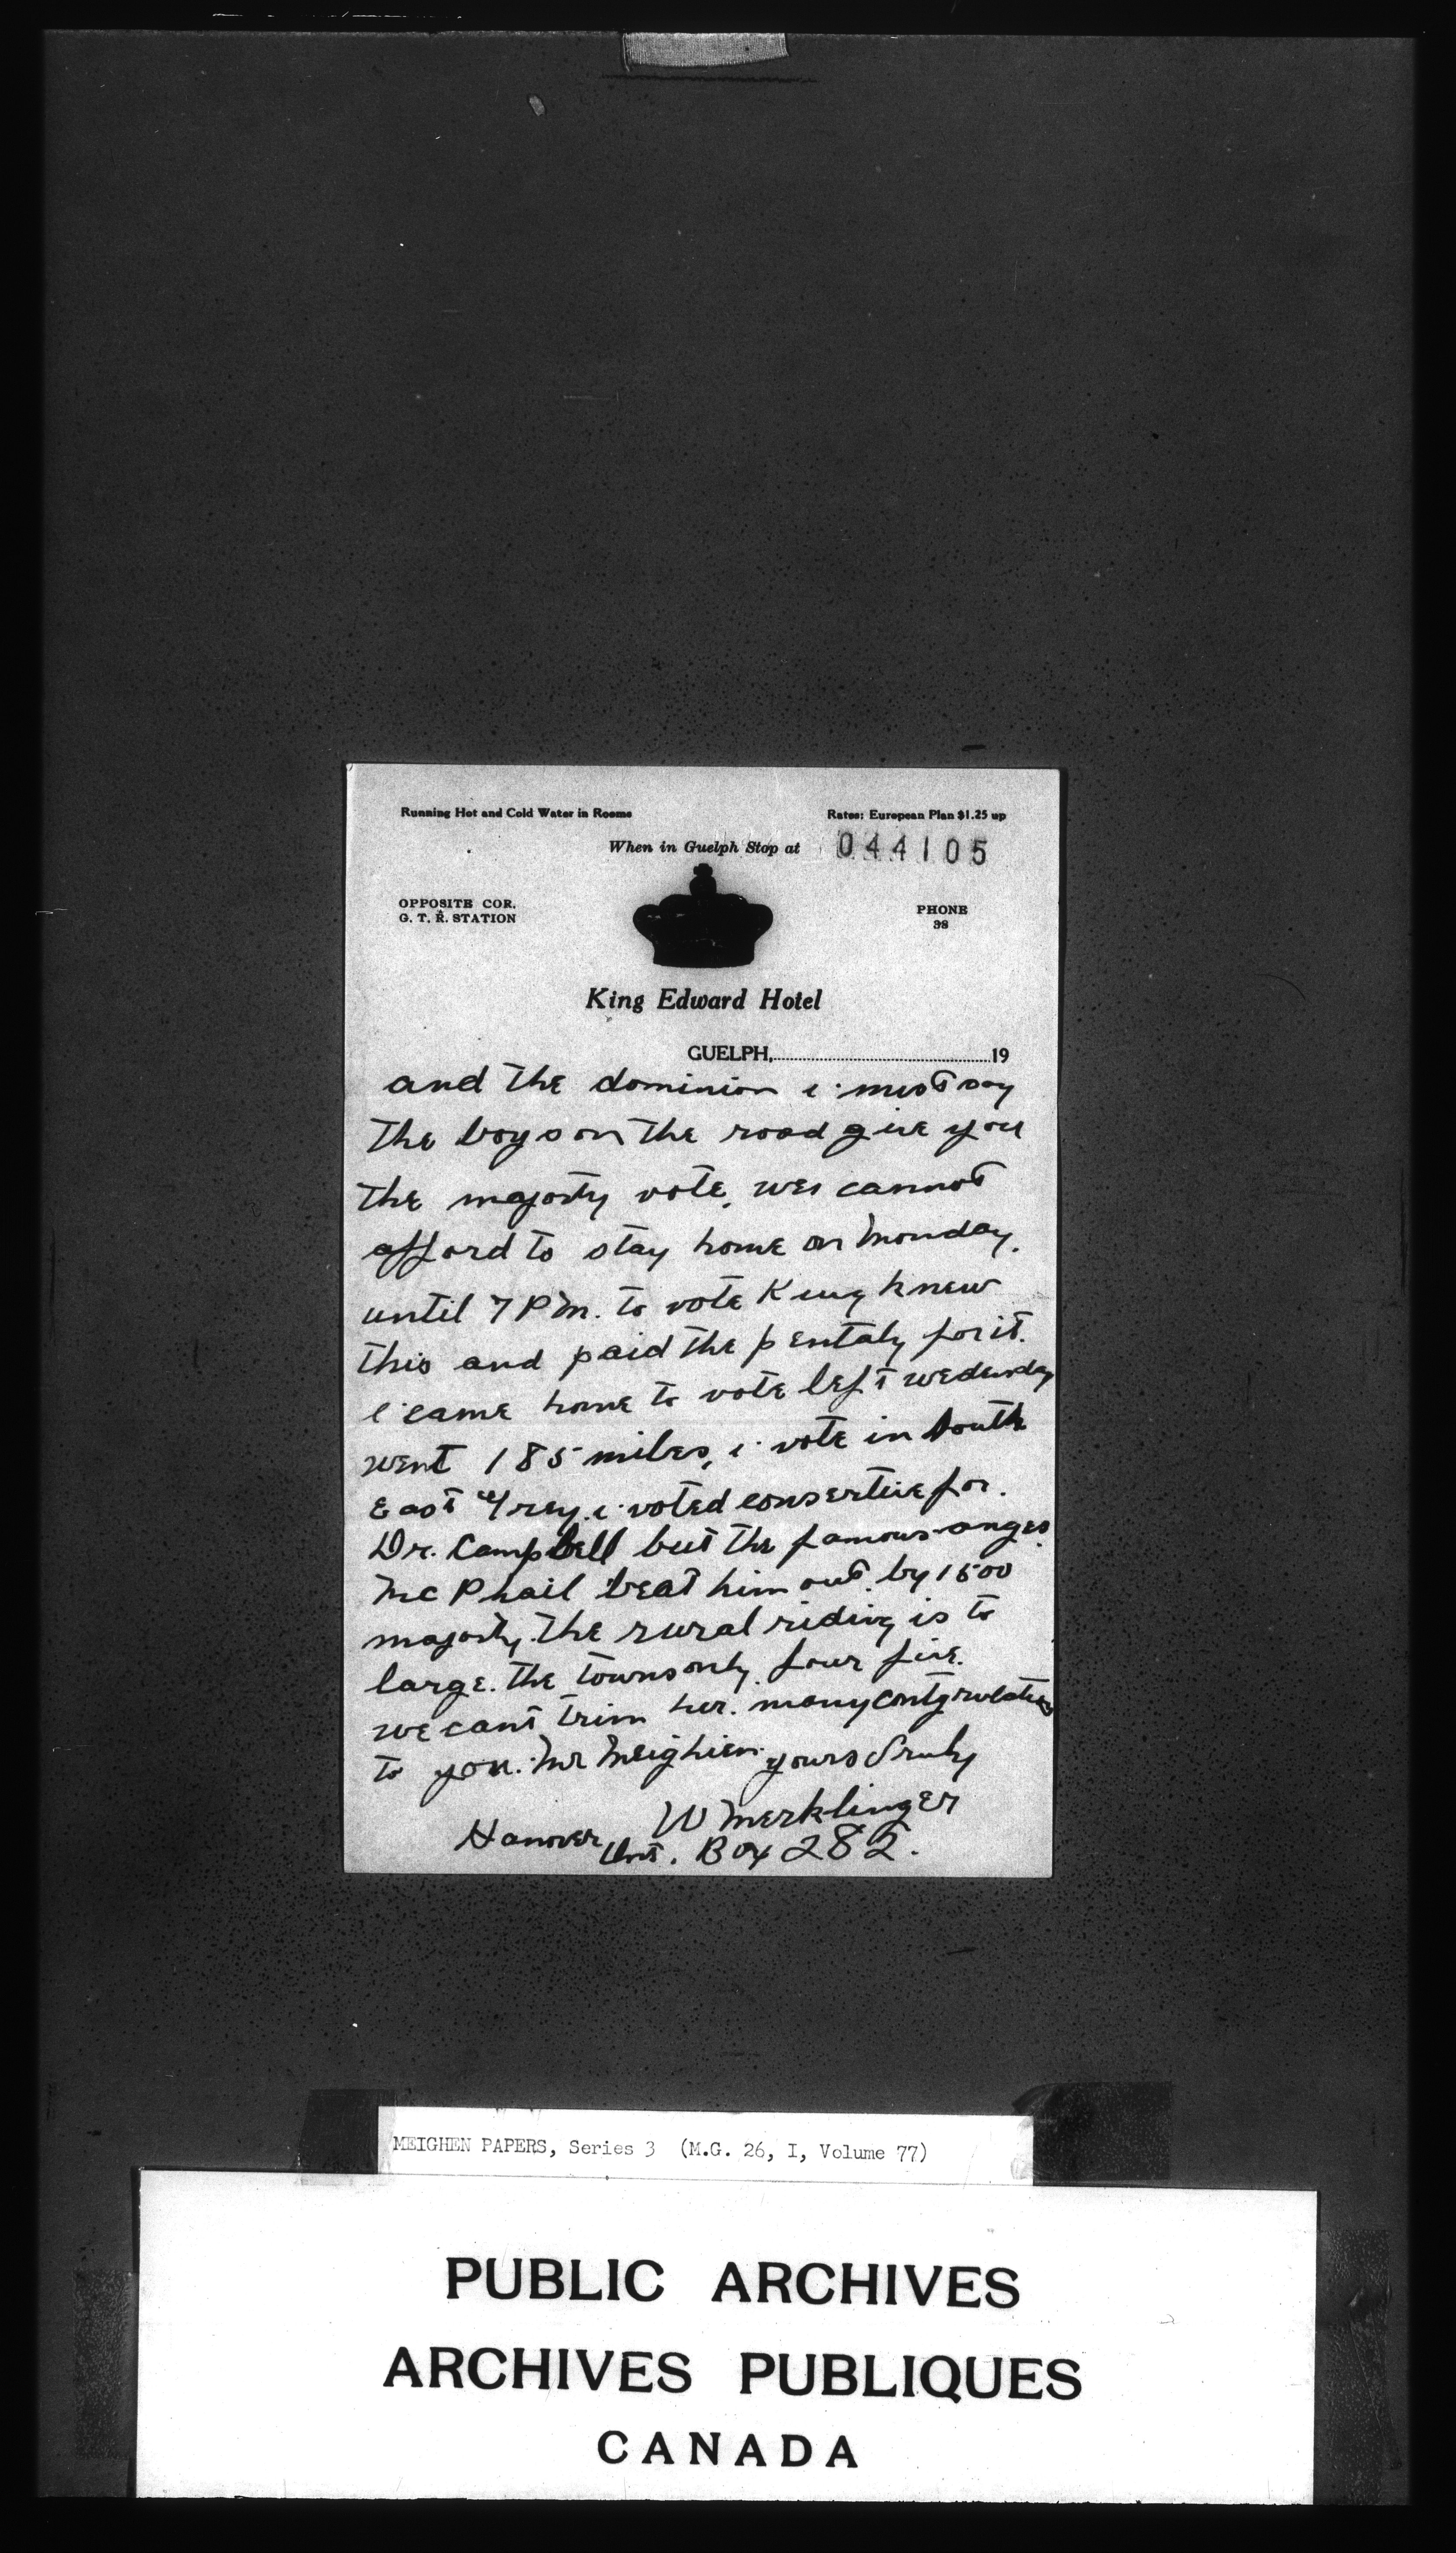 Running Hot and Cold Water in Rooms
Rates: European Plan $1.25 up
When in Guelph Stop at
044105
OPPOSITE COR.
G. T. R. STATION
PHONE
38
King Edward Hotel
GUELPH, 19
and the dominion i must say
the boys on the road give you
the majority vote, we cannot
afford to stay home on Monday.
until 7 P M. to vote King knew
this and paid the pentaly for it.
i came home to vote left wedensday
went 185 miles, i vote in South
East Grey. i voted consertive for.
Dr. Campbell but the famous anges
Mc Phail beat him out by 1500
majority. the rural riding is to
large. the towns only four five.
we cant trim her. many contgrulations
to you. Mr Meighien yours Truly
W Merklinger
Hanover Ont. Box 282.
MEIGHEN PAPERS, Series 3 (M.G. 26, I, Volume 77)
PUBLIC ARCHIVES
ARCHIVES PUBLIQUES
CANADA